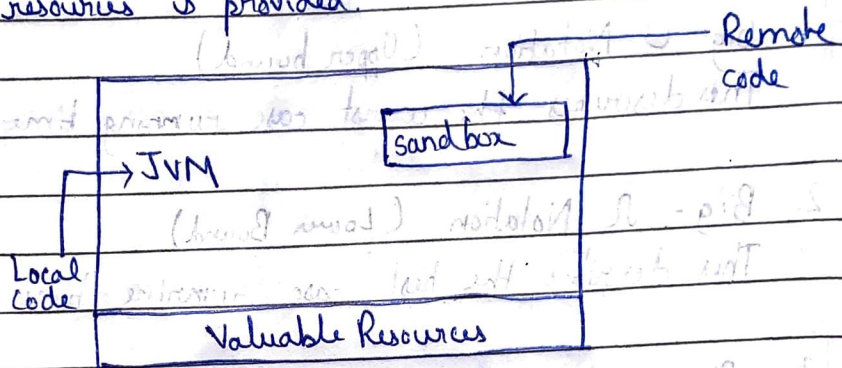 resources is provided.
Remote
code
sandbox
JVM
Local
code
Valuable Resources